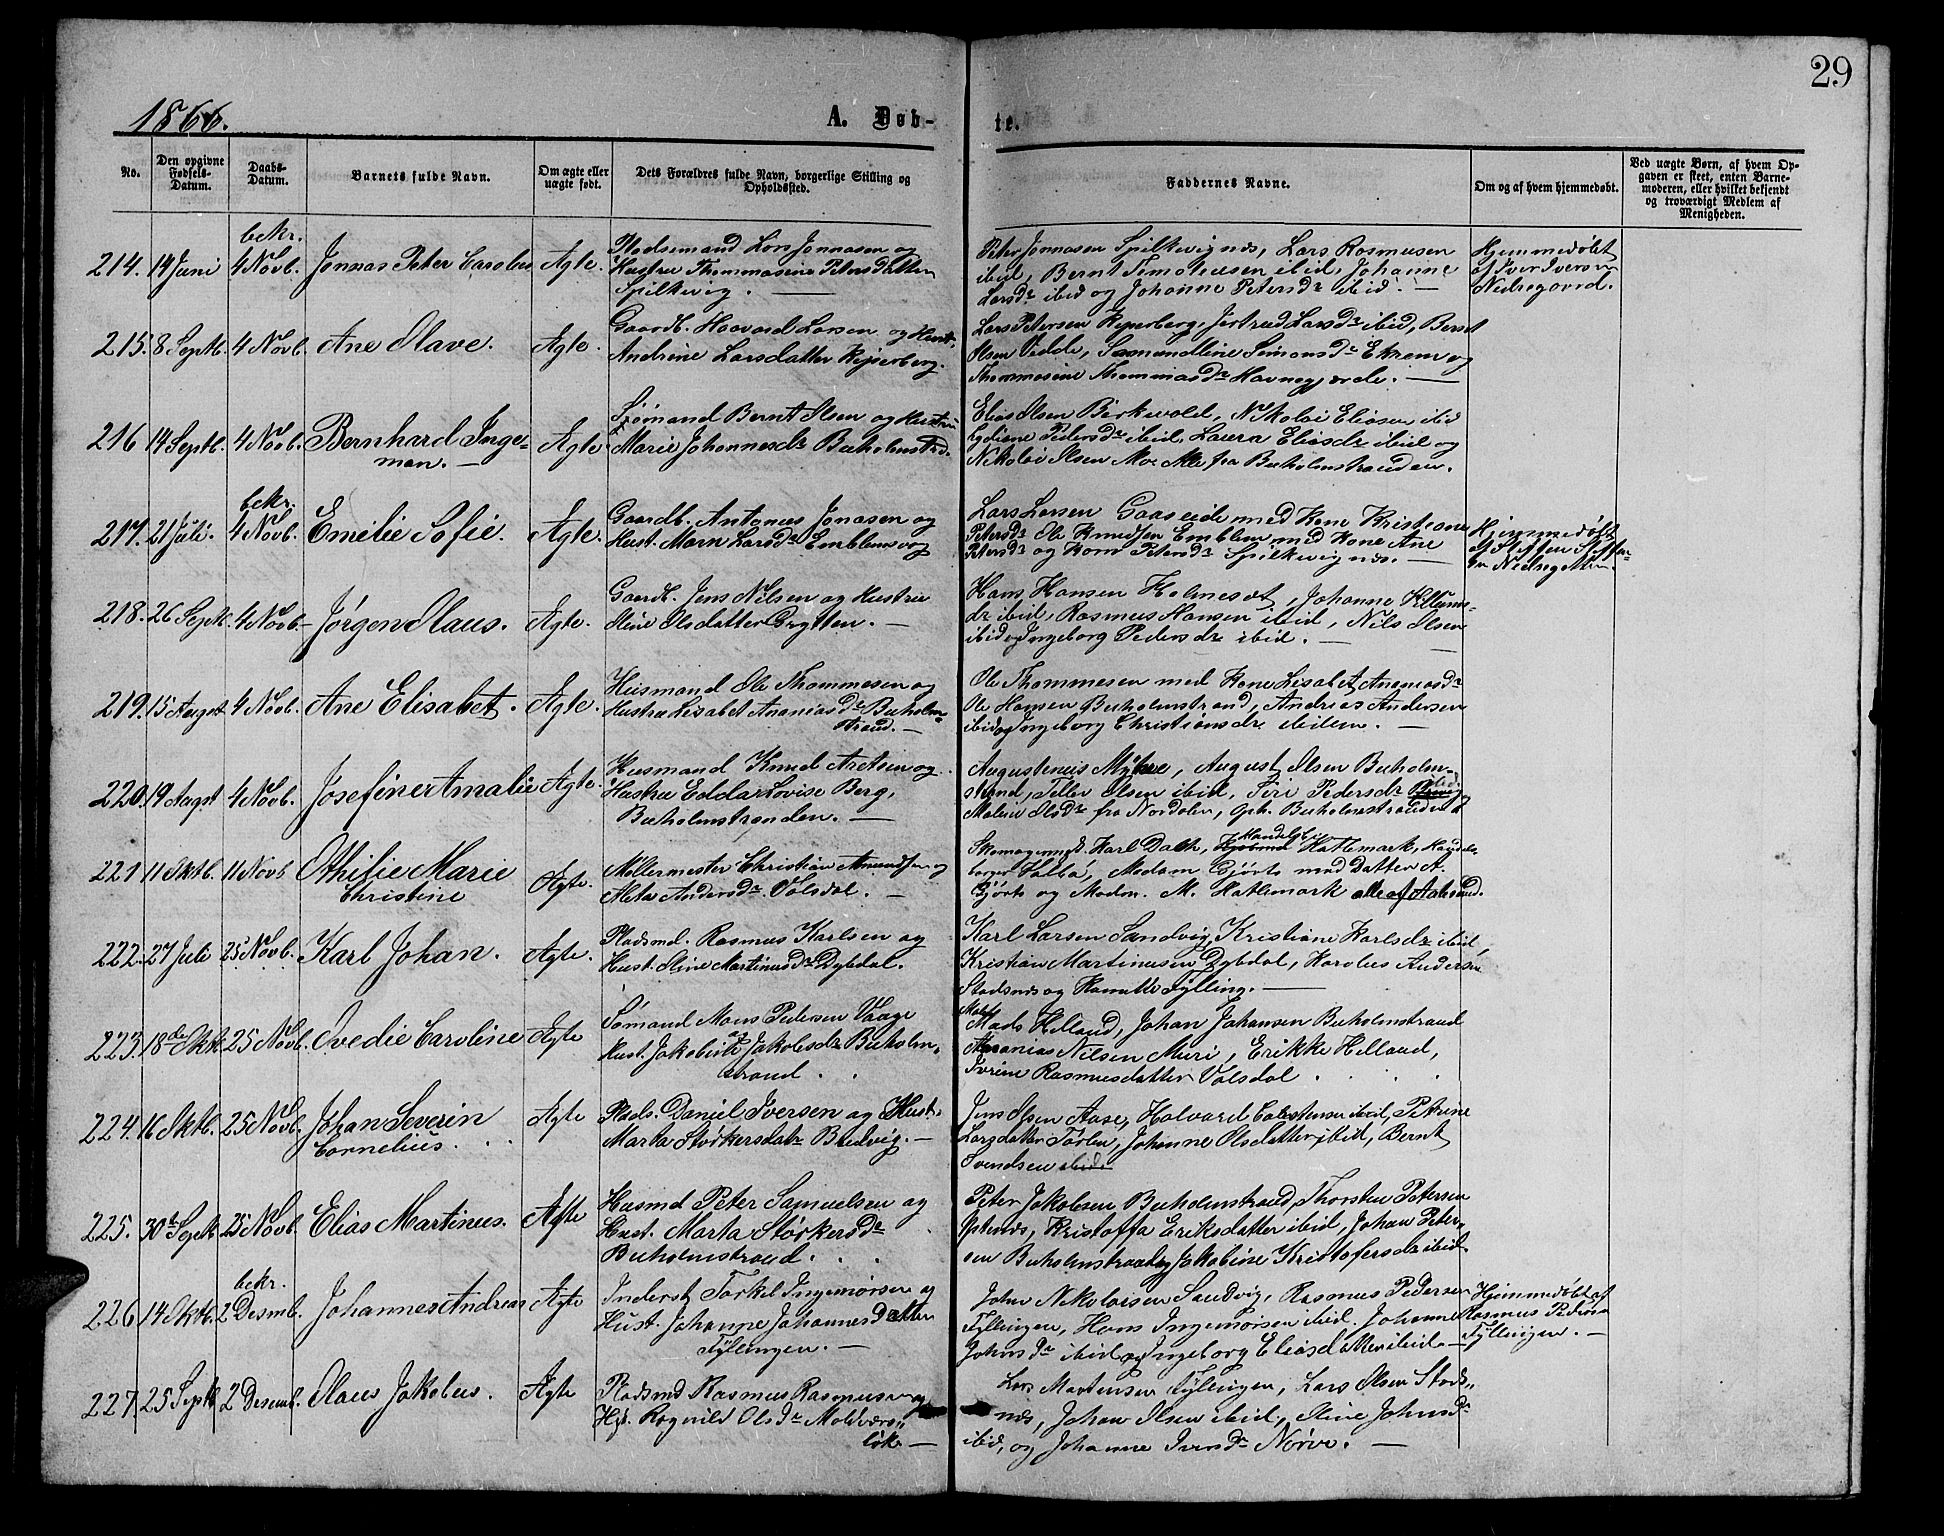 29
1866.
A. Døb-
te.
No.
Den opgivne Fødsels-Datum.
Daabs-Datum.
Barnets fulde Navn.
Om ægte eller uægte født.
Dets Forældres fulde Navn, borgerlige Stilling og Opholdssted.
Faddernes Navne.
Om og af hvem hjemmedøbt.
Ved uægte Børn, af hvem Opgaven er skeet, enten Barnemoderen, eller hvilket bekjendt og troværdigt Medlem af Menigheden.
214. 14 Juni bekr. 4 Novb. Jonnas Peter Carolus Ægte.
Pladsemand Lars Jonnasen og
Hustru Thommasine Peters Datter
Spilkevig.
Peter Jonnasen Spilkevignæs, Lars Rasmusen
ibid, Bernt Timoteusen ibid, Johanne
Larsdr ibid og Johanne Petersdr ibid. —
Hjemmedøbt
af Iver Iversen
Nedregaard.
215. 8 Septb. 4 Novb. Ane Olave. Ægte.
Gaardb. Haavard Larsen og Hust.
Andrine Larsdatter
Lars Petersen Jertrud Larsdr ibid, Bernt
Olsen Vedde, Simonsdr Ekrem og
Thommasine Thommasdr Havnegjærde. —
216 14 Septb. 4 Novb. Bernhard Inge-
man. — Ægte.
Sjømand Bernt Olsen og Hustru
Marie Johannesdr Buholmstrd.
Elias Olsen Birkevold, Nikolai Eliasen ibid
Lydiane Pedersdr ibid, Laura Eliasdr ibid og
Nikolai Olsen Moe Alle fra Buholmstranden.
217. 21 Juli. bekr. 4 Novb. Emilie Sofie. Ægte.
Gaardb. Antonus Jonasen og
Hust. Marn Larsdr Emblemsvog
Lars Larsen Gaaseide med Kone Kristiane
Petersdr Ole Knudsen Emblem med Kone Ane
Petersdr og Petersdr Spilkevignæs. —
Hjemmedøbt
af Steffen Steffen-
218. 26 Septb. 4 Novb. Jørgen Olaus. Ægte.
Gaardb. Jens Nilsen og Hustru
Stine Olsdatter Grytten. —
Hans Hansen Holmeset, Johanne
dr ibid, Rasmus Hansen ibid, Nils Olsen
ibid og Ingeborg Pedersdr ibid. —
219. 15 August 4 Novb. Ane Elisabet. Ægte.
Husmand Ole Thommesen og
Hustru Lisabet Ananiasdr Buholm-
strand. —
Ole Thommesen med Kone Lisabet Ananiasdr
Ole Hansen Buholmstrand, Andreas Andersen
ibid og Ingeborg Christiansdr ibidem. —
220. 19 Augst 4 Novb. Josefine Amalie Ægte.
Husmand Knud Aretsen og
Hustru Edda Lovise Berg,
Buholmstranden. —
Augustenus August Olsen Buholm-
strand, Olsen ibid, Siri Pedersdr
Malene Olsdr fra Nordalen, oph. Buholmstranden
221 11 Oktb. 11 Novb Othilie Marie
Christine Ægte.
Møllermester Christian Amundsen og
Meta Andersdr Volsdal. —
Skomagermst. Karl Dall, Handelsb. Hatlemark, Handels-
borger Madam Gjørts med Datter A.
Gjørts og Madm. M. Hatlemark alle af Aalesund.
222. 27 Juli 25 Novb. Karl Johan. Ægte.
Pladsmd. Rasmus Karlsen og
Hust. Stine Martinusdr Dybdal.
Karl Larsen Sandvig, Kristiane Karlsdr ibid,
Kristian Martinusen Dybdal, Karolus Andersen
Stadsnæs og Tylling. —
223. 18de Oktb 25 Novb. Ovedie Caroline Ægte
Sømand Mons Pedersen Vaage
og
Hust. Jakobine Jakobsdr Buholm-
strand. .
Mads Helland, Johan Johansen Buholmstrand
Ananias Nilsen Muri, Erikke Helland,
Ivrine Rasmusdatter Volsdal
224. 16 Oktb. 25 Novb. Johan Severin
Cornelius. . . Ægte
Plads. Daniel Iversen og Hust.
Marta Størkersdatr Bredvig. —
Jens Olsen Aase, Halvard ibid, Petrine
Larsdatter Johanne Olsdatter ibid, Bernt
Svendsen ibid
225. 30te Septb. 25 Novb. Elias Martinus. Ægte
Husmd Peter Samuelsen og
Hust. Marta Størkersdr
Buholmstrand. . .
Peter Jakobsen Buholmstrand, Thorsten Petersen
Kristoffa Eriksdatter ibid, Johan Peter-
sen Buholmstrand og Jakobine Kristofersdr ibid.
226. 14 Oktb. bekr. 2 Desmb. Johannes Andreas Ægte
Inderst Torkel Ingemørsen og
Hust. Johanne Johannes Datter
Tyllingen. —
John Nikolaisen Sandvig, Rasmus Pedersen
Tyllingen, Hans Ingemørsen ibid. Johanne
Johnsdr ibid og Ingeborg Eliasdatter ibid. —
Hjemmedøbt af
Rasmus Pedersen
Tyllingen. —
227. 25 Septb 2 Desemb. Olaus Jakobus. Ægte
Pladsmd Rasmus Rasmusen og
Hst. Ragnild Olsdr Moldvers-
løk —
Lars Martinsen Tyllingen, Lars Olsen Stads-
næs, Johan Olsen ibid, Stine Johnsdr
ibid, og Johanne Iversdr Nørve. —